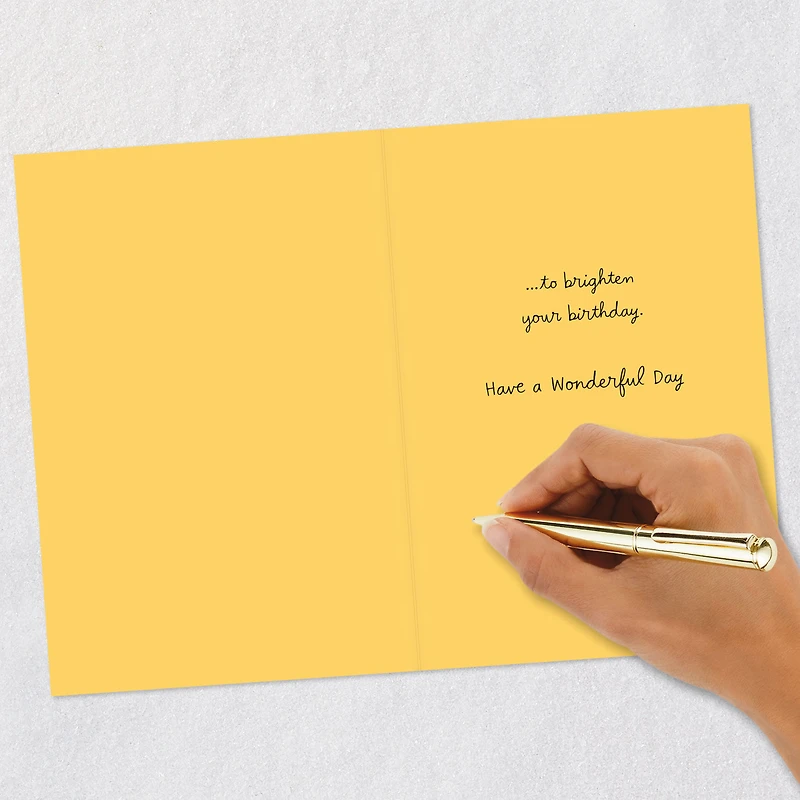 ...to brighten
your birthday.
Have a Wonderful Day